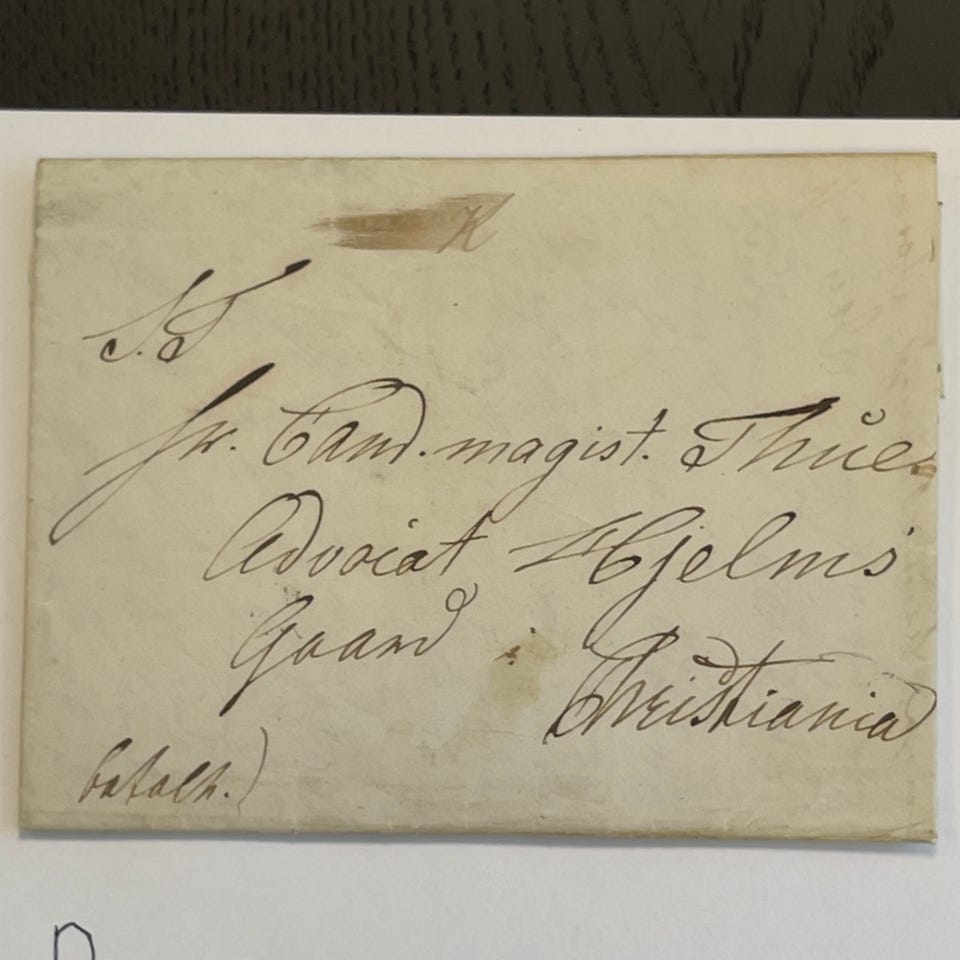 S.T
Hr. Cand. magist. Thŭe
Advocat Hjelms
Gaard i
Christiania
betalt.)